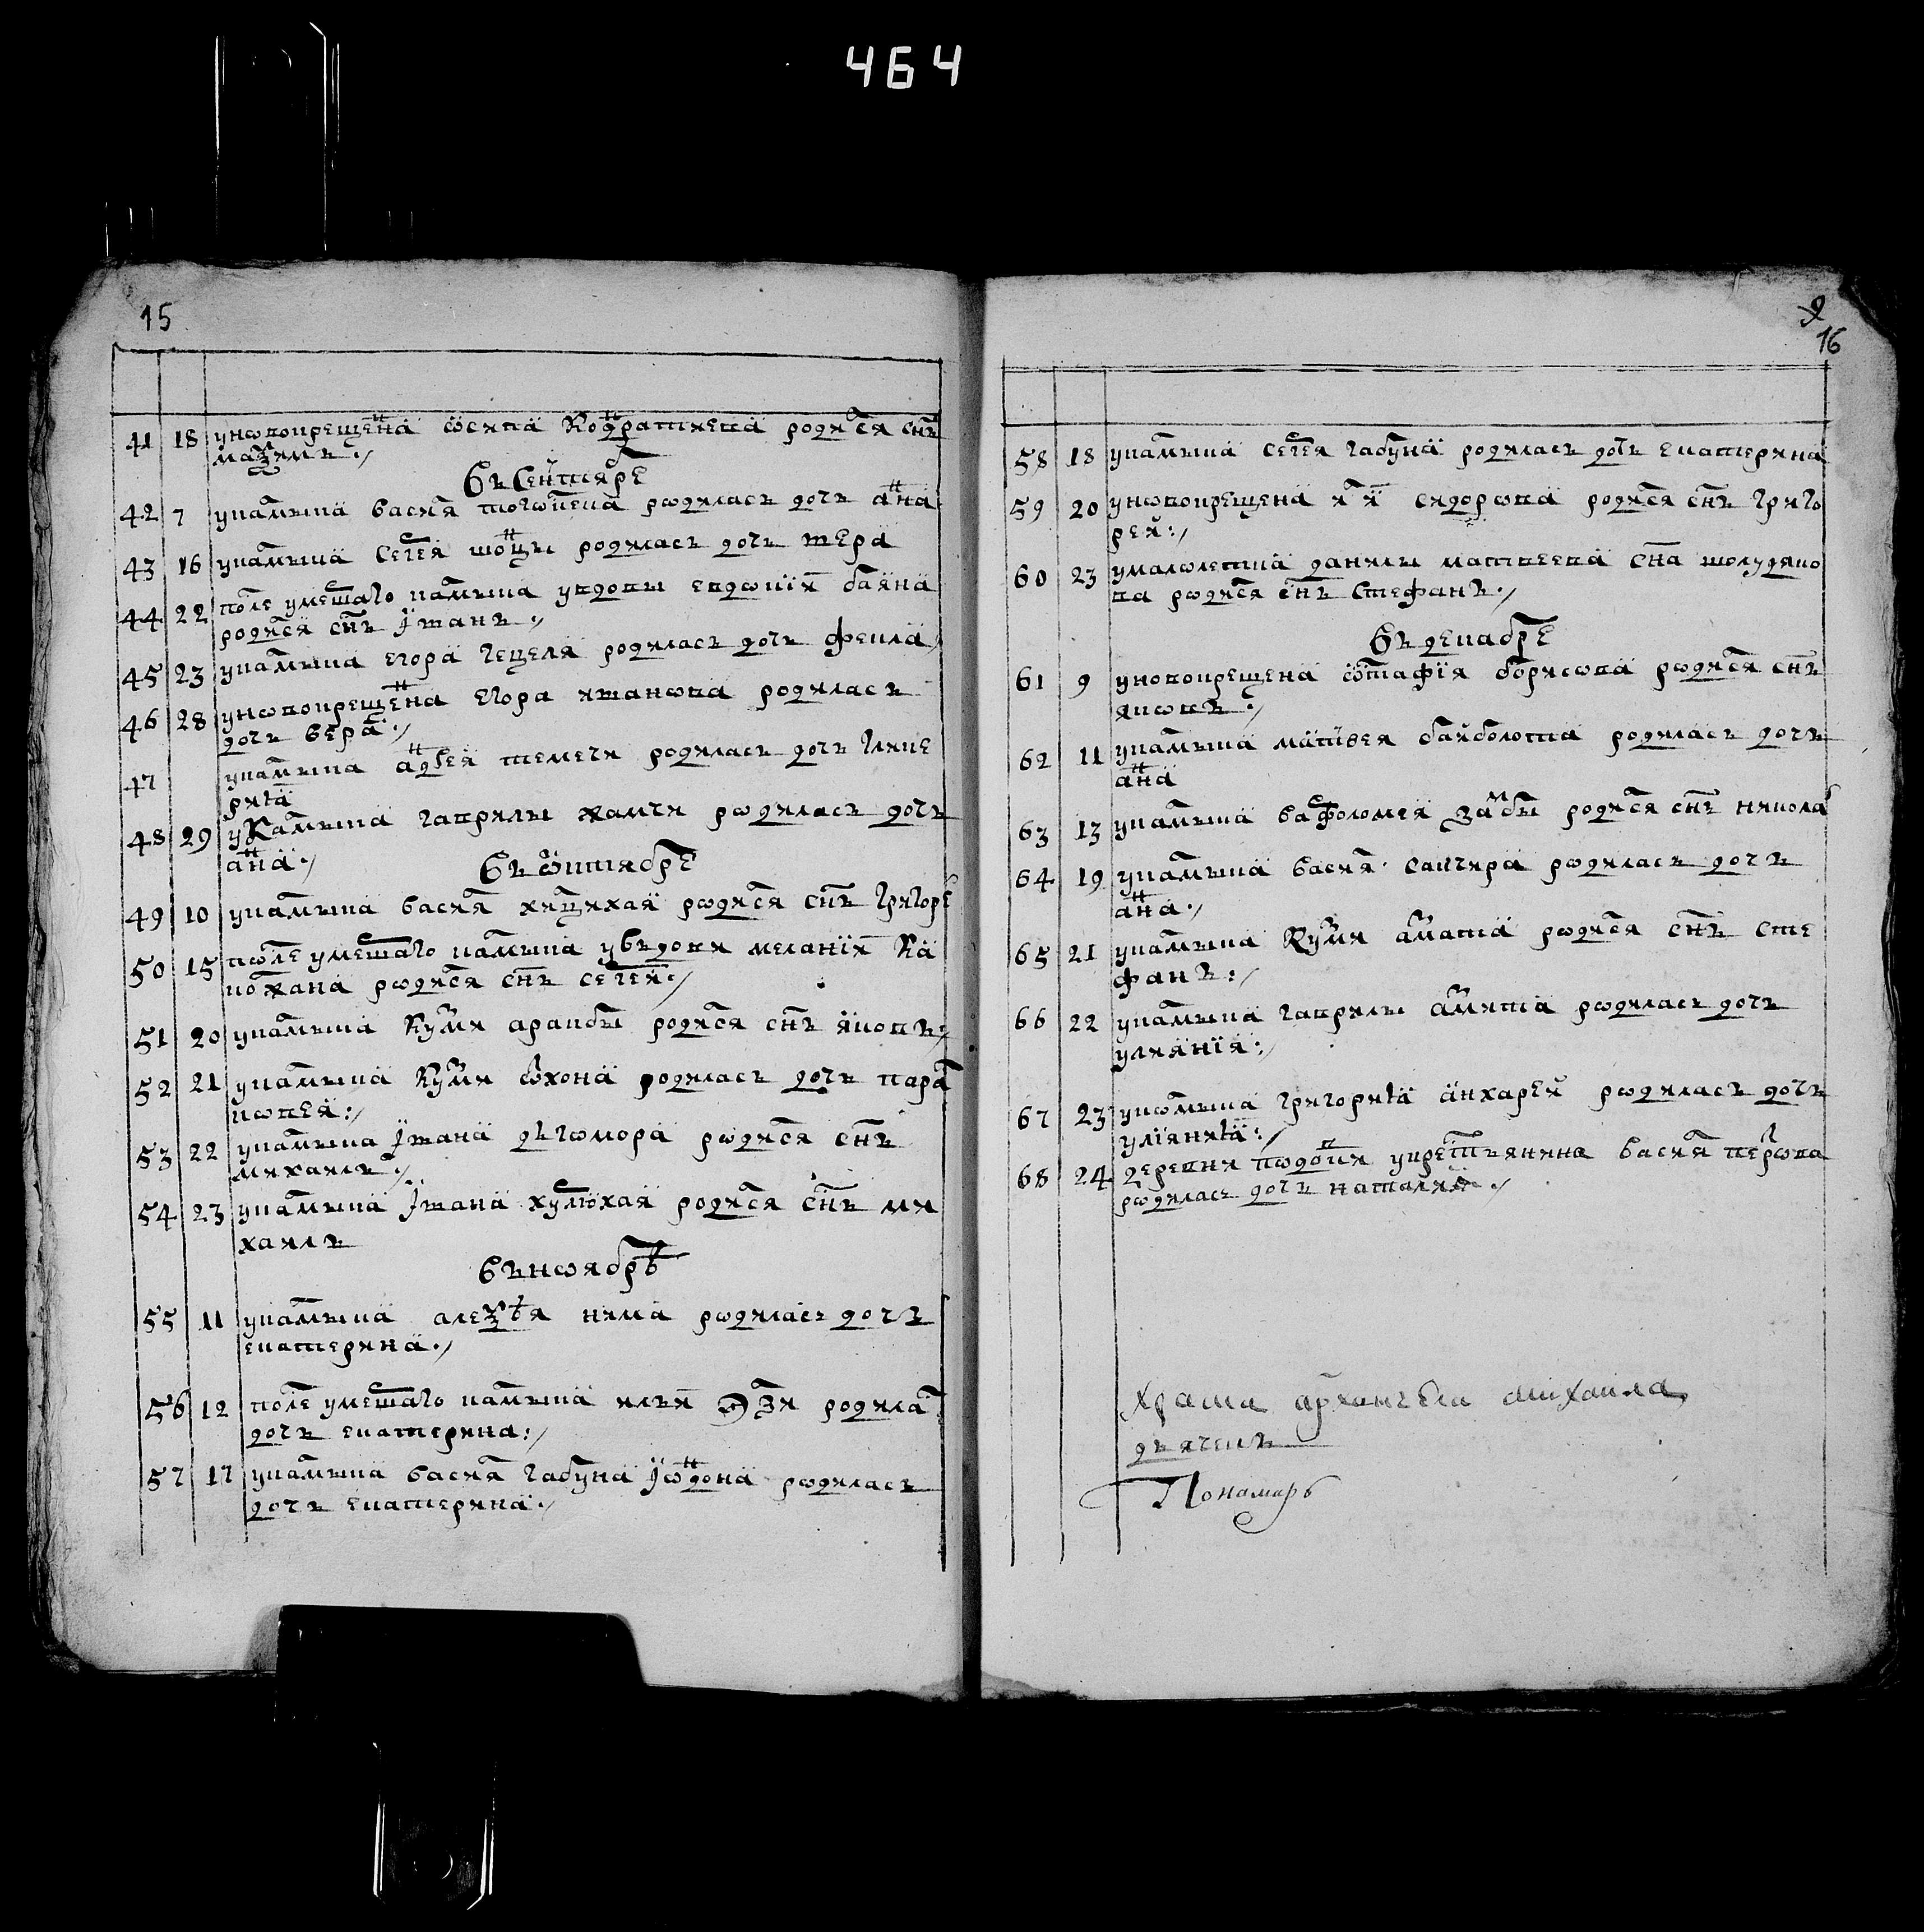 464
15
41 18 уновокрещенна осипа кондратиева родился снъ
маѯимъ
Въ Сентябре
42 7 укалмыка василя родилась дочь анна
43 16 укалмыка сергея шонцы родилась дочь вера
44 22 после умершаго калмыка увдовы евдокии баяна
родился снъ иванъ
45 23 укалмыка егора гецеля родилась дочь фекла
46 28 уновокрещенна егора иванова родилась
дочь вера
47 укалмыка андрея темечи родилась дочь глике
рия
48 29 укалмыка гаврилы хамчи родилась дочь
анна
Въ октябре
49 10 укалмыка василя хицихая родился снъ григоре
50 15 после умершаго калмыка увъдови мелании ка
родился снъ сергей
51 20 укалмыка кузми арапбы родился снъ яковъ
52 21 укалмыка кузми охона родилась дочь парас
ковея
53 22 укалмыка ивана дѣгомора родился снъ
михаилъ
54 23 укалмыка ивана хулюхая родился снъ ми
хаилъ
въ ноябрѣ
55 11 укалмыка алеѯѣя нима родилась дочь
екатерина
56 12 после умершаго калмыка ильи родилас
дочь екатерина
57 17 укалмыка василя габуна родилась
дочь екатерина
16
58 18 укалмыка сергея габуна родилась дочь екатерина
59 20 уновокрещена сидорова родился снъ григо
рей
60 23 умалолетка данилы матвеева сна шолудяко
ва родился снъ стефанъ
Въ декабре
61 9 уновокрещена остафия борисова родился снъ
яковъ
62 11 укалмыка матвея байболота родилась дочь
анна
63 13 укалмыка варфоломея замбы родился снъ никола
64 19 укалмыка василя санчира родилась дочь
анна
65 21 укалмыка кузми амата родился снъ сте
фанъ
66 22 укалмыка гаврилы амита родилась дочь
улиания
67 23 укалмыка григория анхарей родилась дочь
68 24 деревни укрестьянина василя перова
родилась дочь наталия
Храма архангела михаила
дьячекъ
Пономарь